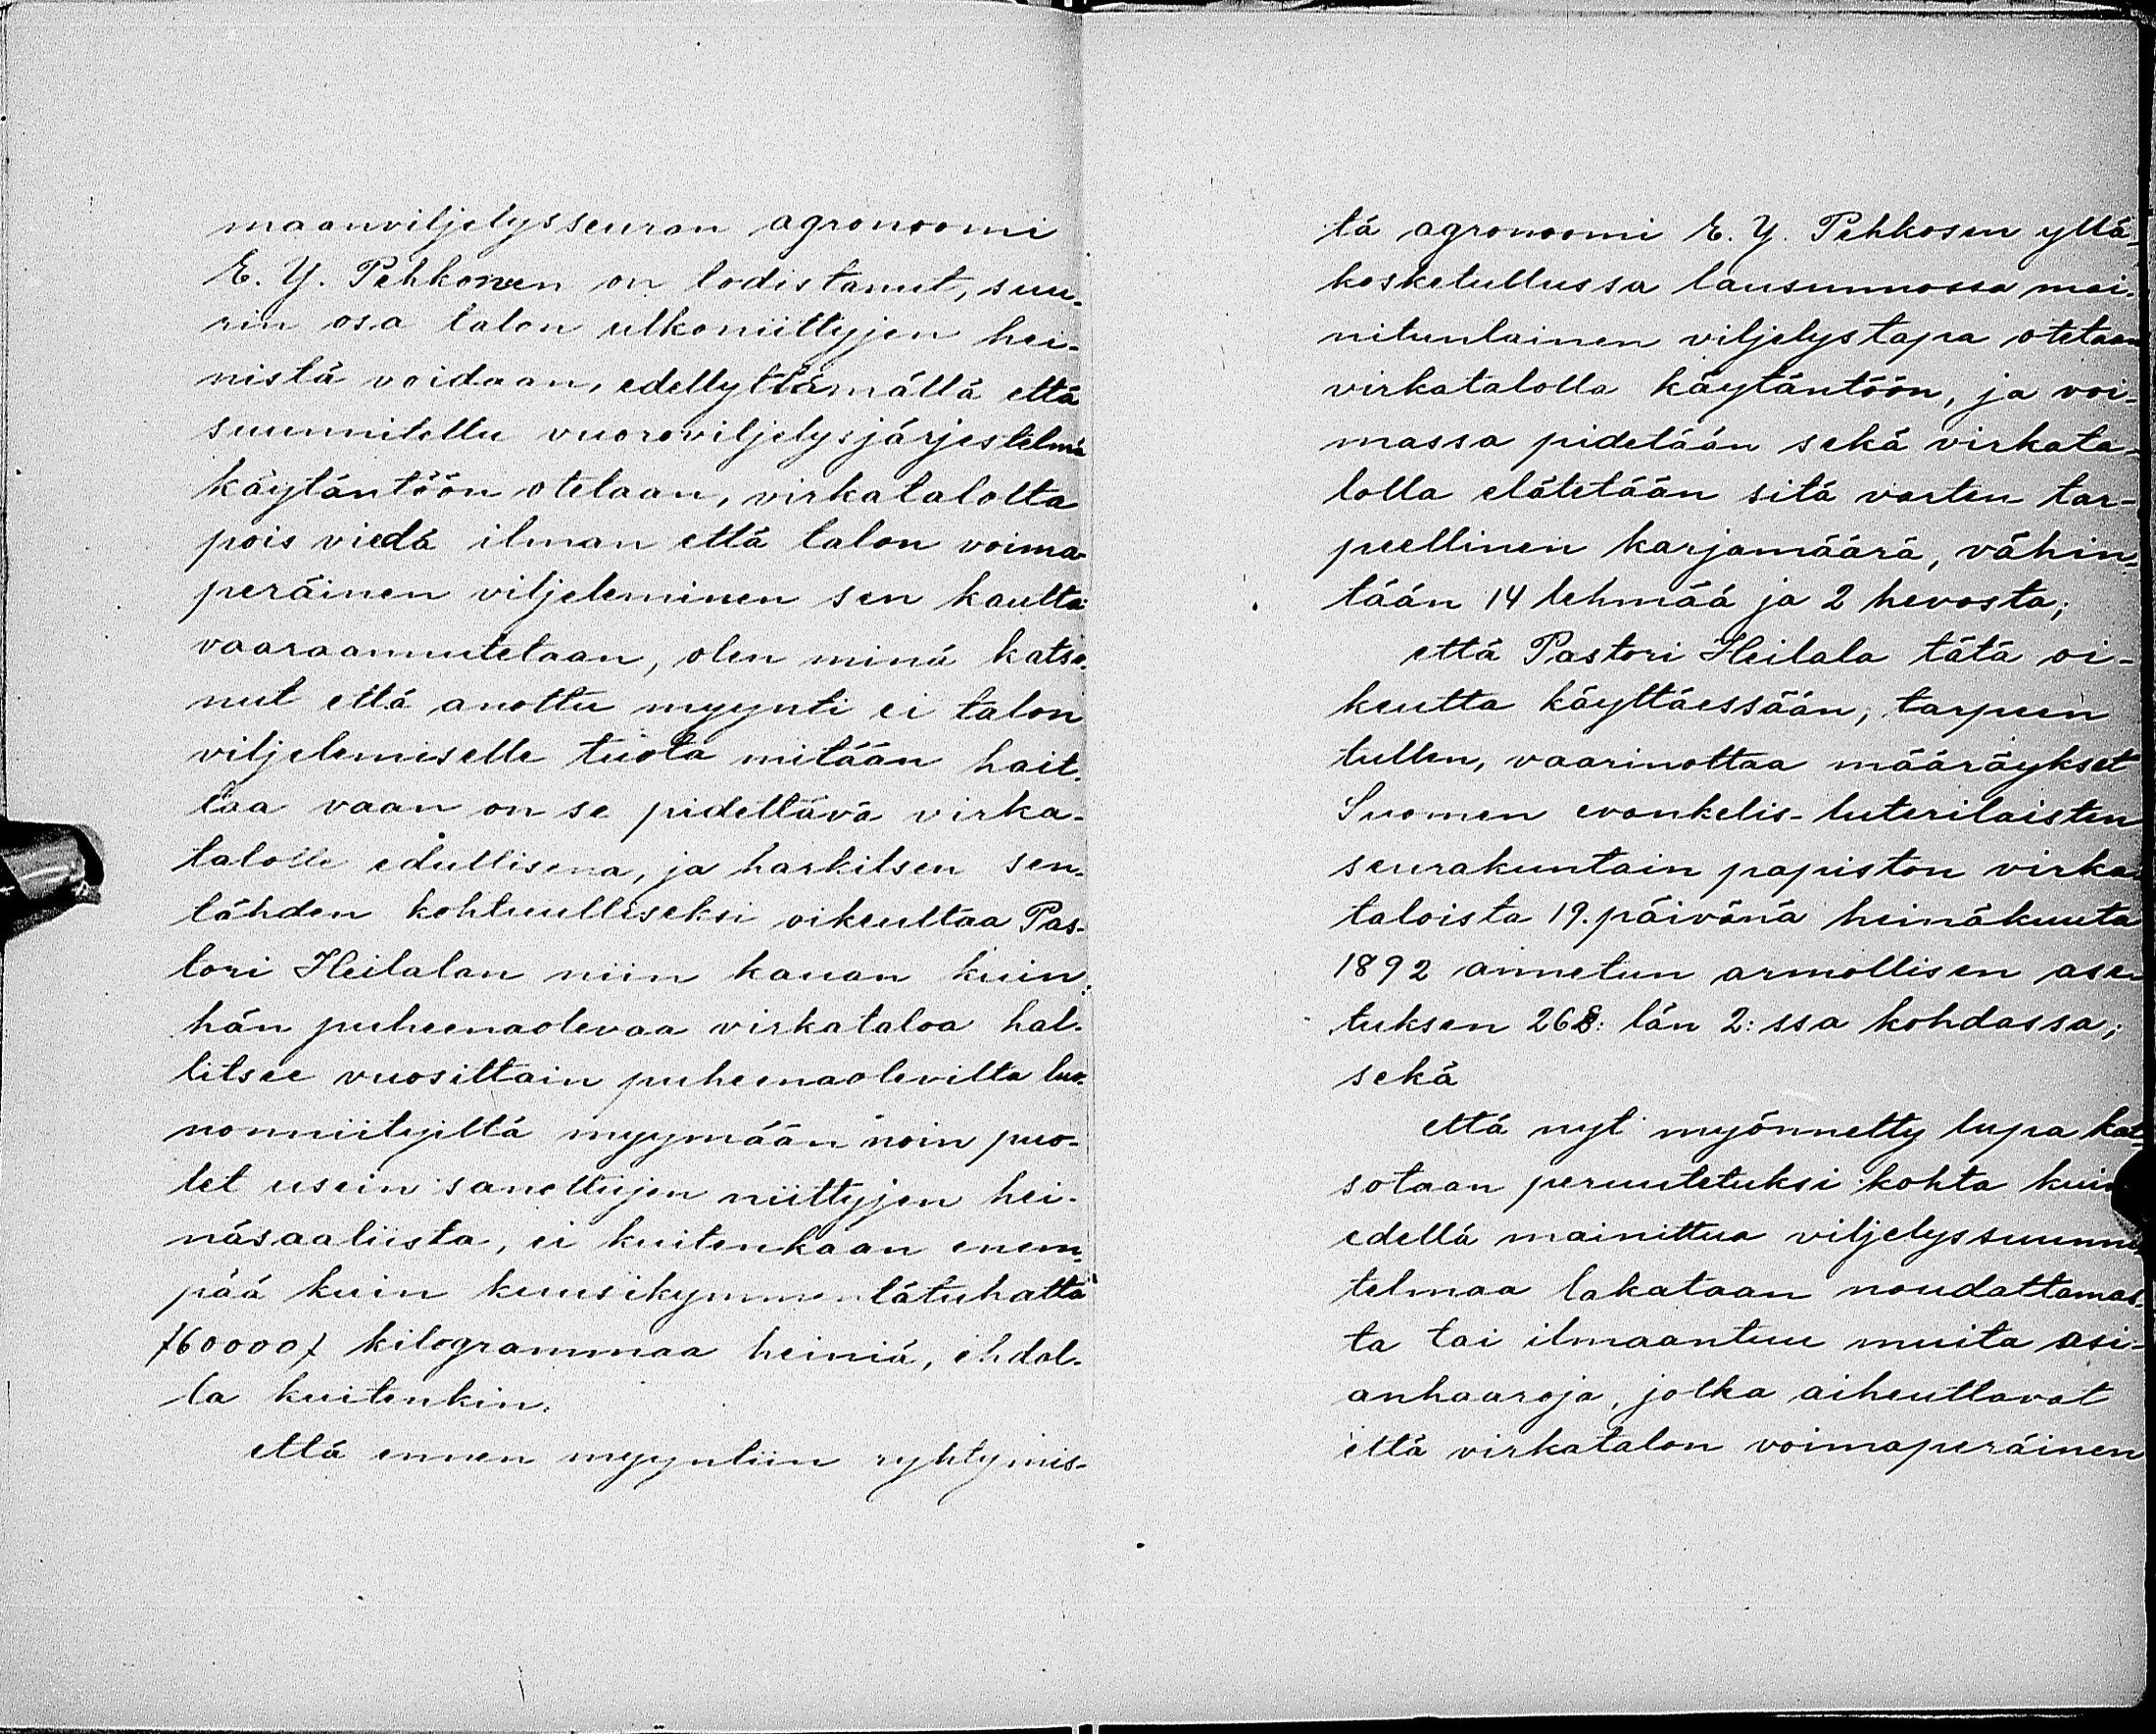 maanviljelysseuran agronoomi
E. Y. Pehkonen on todistanut, suu-
rin osa talon ulkoniittyjen hei-
nistä voidaan, edellyttämällä että
suunnitellu vuoroviljelysjärjestelmä
käytäntöön otetaan, virkatalolta
pois viedä ilman että talon voima-
peräinen viljeleminen sen kautta
vaaraannutetaan, olen minä katso-
nut että anottu myynti ei talon
viljelemiselle tuota mitään hait-
taa vaan on se pidettävä virka-
talolle edullisena, ja harkitsen sen-
tähden kohtuulliseksi oikeuttaa Pas-
tori Heilalan niin kauan kuin
hän puheenaolevaa virkataloa hal-
litsee vuosittain puheenaolevilta luo-
nonniityiltä myymään noin puo-
let usein sanottujen niittyjen hei-
näsaaliista, ei kuitenkaan enem-
pää kuin kuusikymmentätuhatta
/60000/ kilogrammaa heiniä, ehdol-
la kuitenkin:
että ennen myyntiin ryhtymis-
tä agronoomi E. Y. Pehkosen yllä-
kosketullussa lausunnossa mai-
nitunlainen viljelystapa otetaan
virkatalolla käytäntöön, ja voi-
massa pidetään sekä virkata-
lolla elätetään sitä varten tar-
peellinen karjamäärä, vähin-
tään 14 lehmää ja 2 hevosta;
että Pastori Heilala tätä oi-
keutta käyttäessään, tarpeen
tullen, vaarinottaa määräykset
Suomen evankelis-luterilaisten
seurakuntain papiston virka-
taloista 19. päivänä heinäkuuta
1892 annetun armollisen ase-
tuksen 26 §: län 2: ssa kohdassa;
sekä
että nyt myönnetty lupa kat-
sotaan peruutetuksi kohta kuin
edellä mainittua viljelyssuunni-
telmaa lakataan noudattamas-
ta tai ilmaantuu muita asi-
anhaaroja, jotka aiheuttavat
että virkatalon voimaperäinen